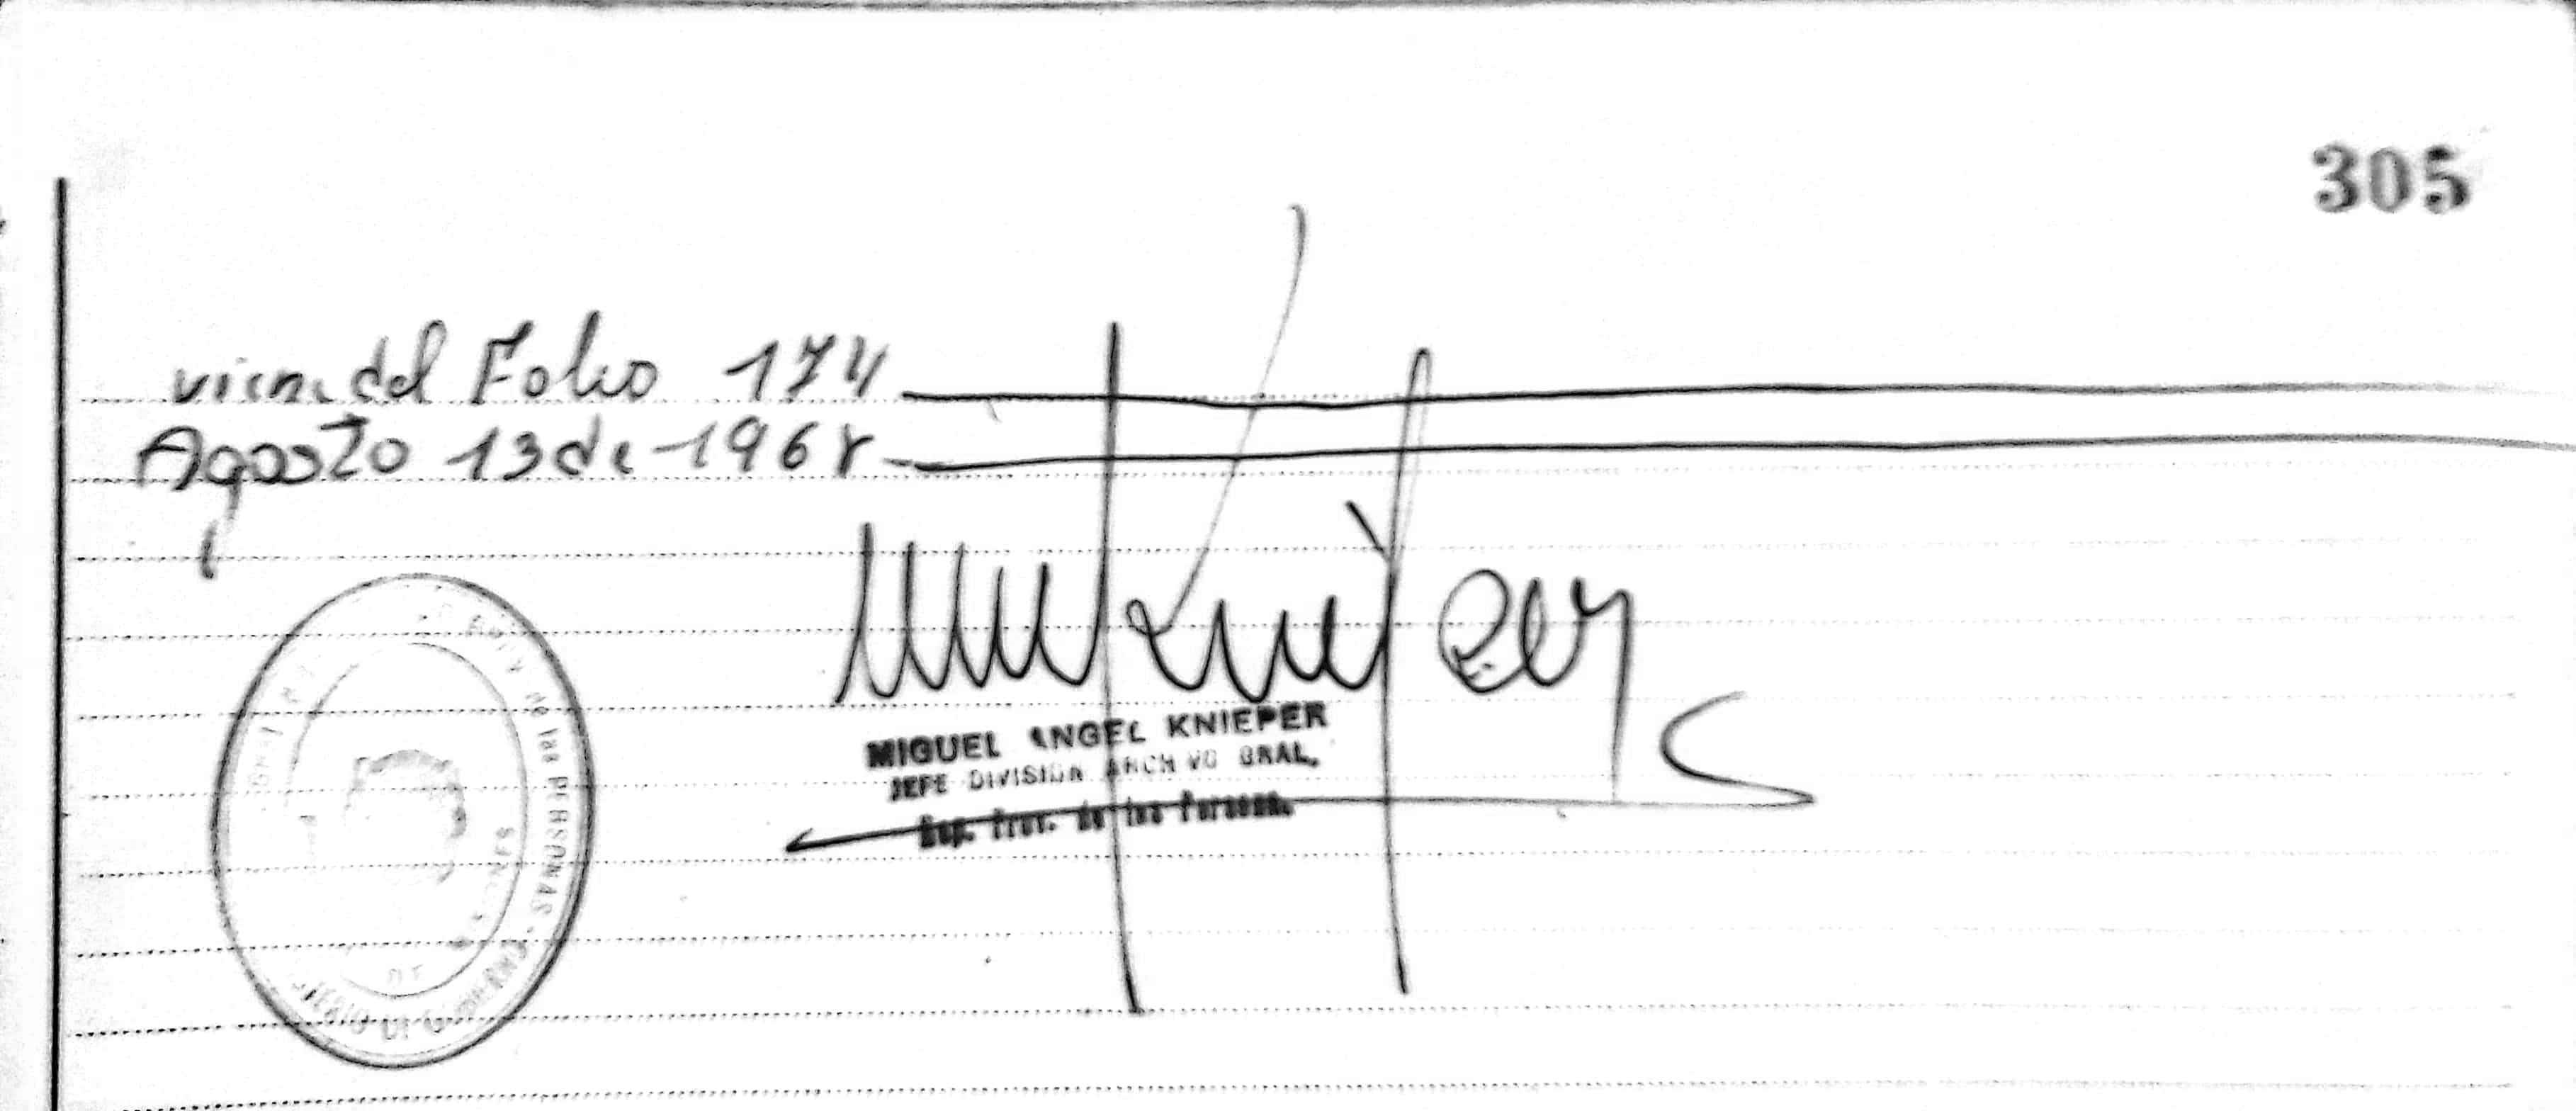 305
viene del Folio 174
Agosto 13 de 1968
MIGUEL ANGEL KNIEPER
JEFE DIVISION ARCHIVO GRAL.
Rep. Prov. de las Personas.
de las PERSONAS